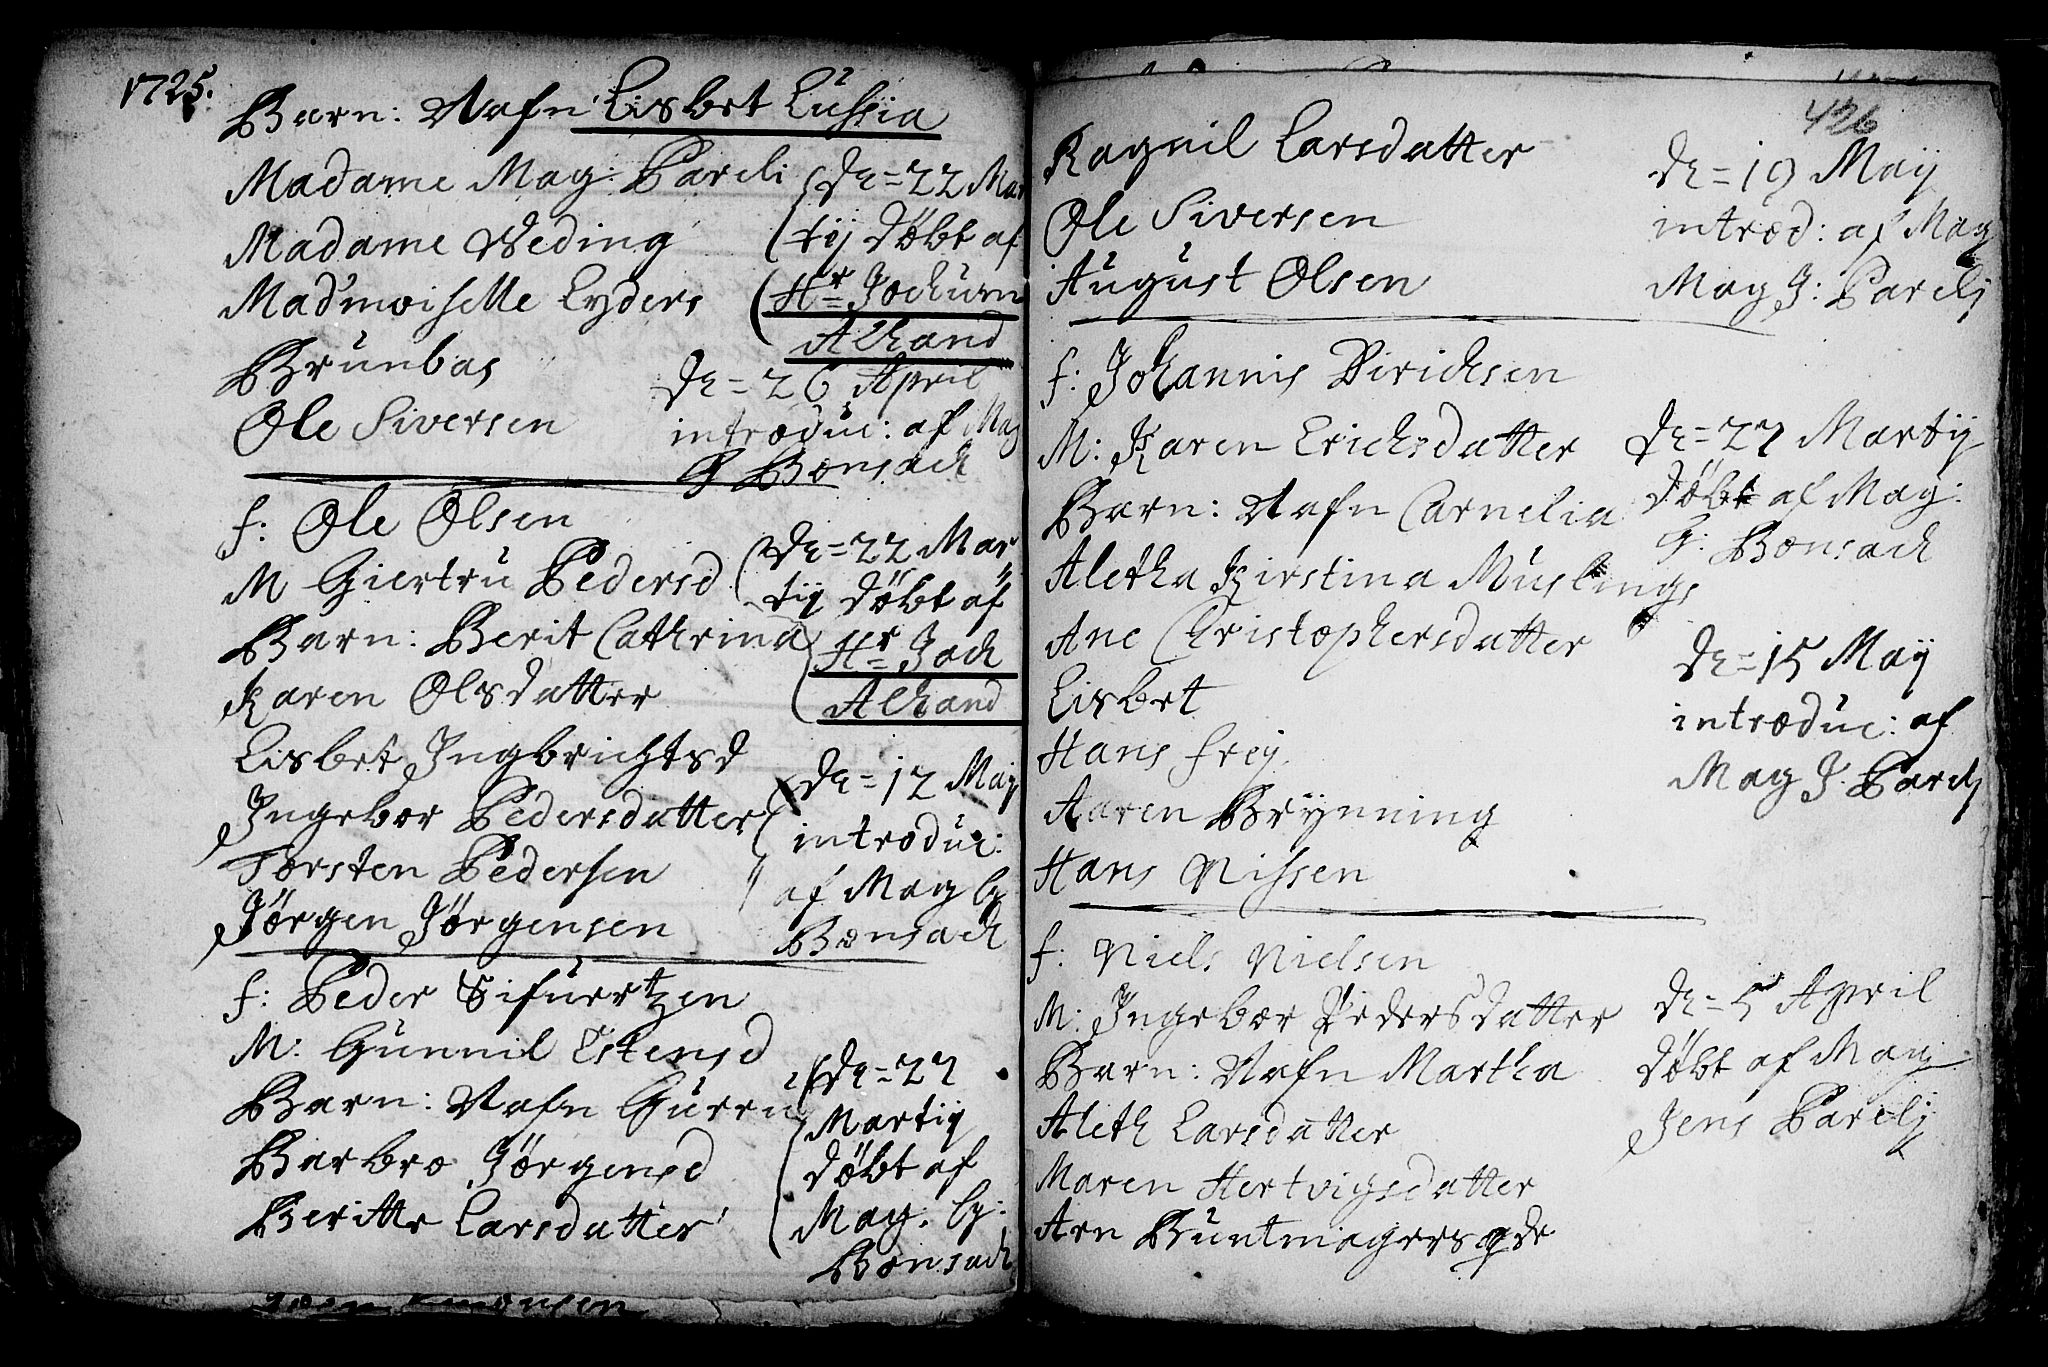 1725.
Barn: Nafn Lisbet Lussia
Madame Mag: Pareli
Madame Weding
Mad'moiselle Lyders
Brunbas
Ole Siversen
de = 22 Mar
tij døbt af
Hr Jochum
Alhand
de = 26 April
introduc: af Mag
G Bonsach
f: Ole Olsen
M Giertru Pedersd
Barn: Berit Cathrina
Karen Olsdatter
Lisbet Ingbrichtsd
Ingebor Pedersdatter
Torsten Pedersen
Jørgen Jørgensen
de = 22 Mar
tij døbt af
Hr Joch
Alhand
de = 12 Maij
introduc:
af Mag G
Bonsach
f: Peder Sifuertzen
M: Gunnil Estensd
Barn: Nafn Gurru
Barbro Jørgensd
Beritte Larsdatter
de = 27
Martij
døbt af
Mag. G:
Bonsach
436
Ragnil Larsdatter
Ole Siversen
August Olsen
de = 19 Maij
introd: af Mag
Mag J: Parelj
f: Johannis Dirichsen
M: Karen Erichsdatter
Barn: Nafn Carnelia
Aletha Kirstina Muslings
Ane Christophersdatter
Lisbet
Hans frej
Karen Brynning
Hans Nissen
de = 27 Martij
døbt af Mag:
G: Bonsach
de = 15 Maij
introduc: af
Mag J Parelj
f: Niels Nielsen
M: Ingebor Pedersdatter
Barn: Nafn Martha
Aleth Larsdatter
Maren Hertvigsdatter
Arn Buntmagers gde
de = 5 April
døbt af Mag:
Jens Parelj